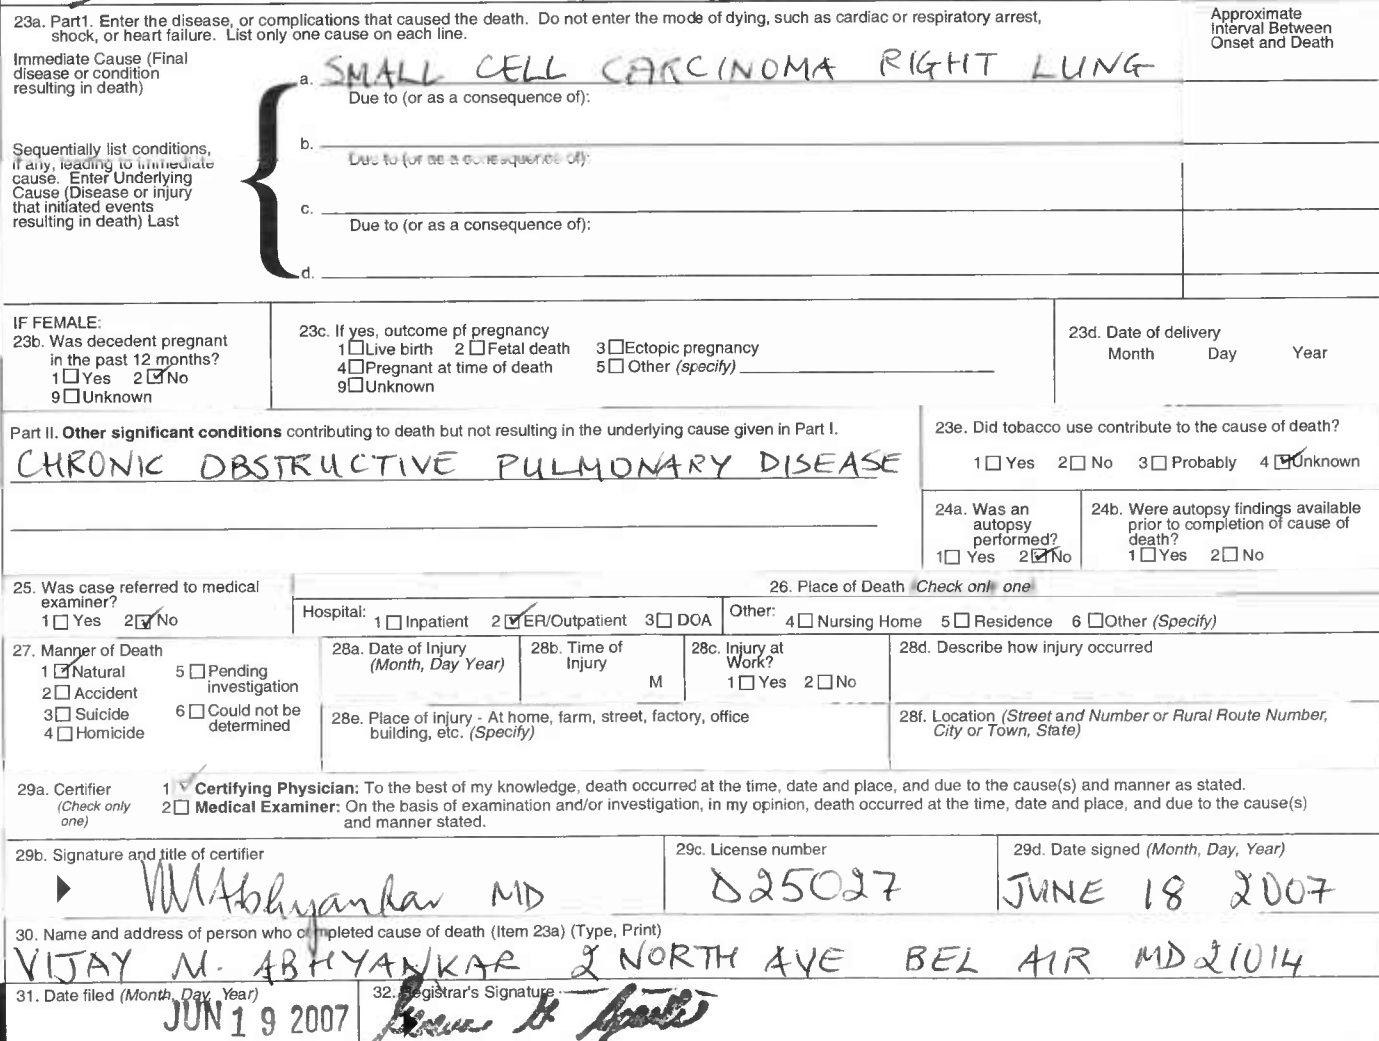 23a. Part1. Enter the disease, or complications that caused the death. Do not enter the mode of dying, such as cardiac or respiratory arrest,
shock, or heart failure. List only one cause on each line.
Approximate
Interval Between
Onset and Death
Immediate Cause (Final
disease or condition
resulting in death)
a. SMALL CELL CARCINOMA RIGHT LUNG
Due to (or as a consequence of):
b.
Due to (or as a consequence of):
Sequentially list conditions,
if any, leading to immediate
cause. Enter Underlying
Cause (Disease or injury
that initiated events
resulting in death) Last
c.
Due to (or as a consequence of):
d.
IF FEMALE:
23b. Was decedent pregnant
in the past 12 months?
1 Yes 2 No
9 Unknown
23c. If yes, outcome pf pregnancy
1 Live birth 2 Fetal death 3 Ectopic pregnancy
4 Pregnant at time of death 5 Other (specify)
9 Unknown
23d. Date of delivery
Month Day Year
Part II. Other significant conditions contributing to death but not resulting in the underlying cause given in Part I.
CHRONIC OBSTRUCTIVE PULMONARY DISEASE
23e. Did tobacco use contribute to the cause of death?
1 Yes 2 No 3 Probably 4 Unknown
24a. Was an
autopsy
performed?
1 Yes 2 No
24b. Were autopsy findings available
prior to completion of cause of
death?
1 Yes 2 No
25. Was case referred to medical
examiner?
1 Yes 2 No
26. Place of Death (Check only one)
Hospital: 1 Inpatient 2 ER/Outpatient 3 DOA
Other: 4 Nursing Home 5 Residence 6 Other (Specify)
27. Manner of Death
1 Natural 5 Pending
investigation
2 Accident
3 Suicide 6 Could not be
determined
4 Homicide
28a. Date of Injury
(Month, Day Year)
28b. Time of
Injury
M
28c. Injury at
Work?
1 Yes 2 No
28d. Describe how injury occurred
28e. Place of injury - At home, farm, street, factory, office
building, etc. (Specify)
28f. Location (Street and Number or Rural Route Number,
City or Town, State)
29a. Certifier
(Check only
one)
1 Certifying Physician: To the best of my knowledge, death occurred at the time, date and place, and due to the cause(s) and manner as stated.
2 Medical Examiner: On the basis of examination and/or investigation, in my opinion, death occurred at the time, date and place, and due to the cause(s)
and manner stated.
29b. Signature and title of certifier
VMAbhyankar MD
29c. License number
D25027
29d. Date signed (Month, Day, Year)
JUNE 18 2007
30. Name and address of person who completed cause of death (Item 23a) (Type, Print)
VIJAY M. ABHYANKAR 2 NORTH AVE BEL AIR MD 21014
31. Date filed (Month, Day, Year)
JUN 19 2007
32. Registrar's Signature